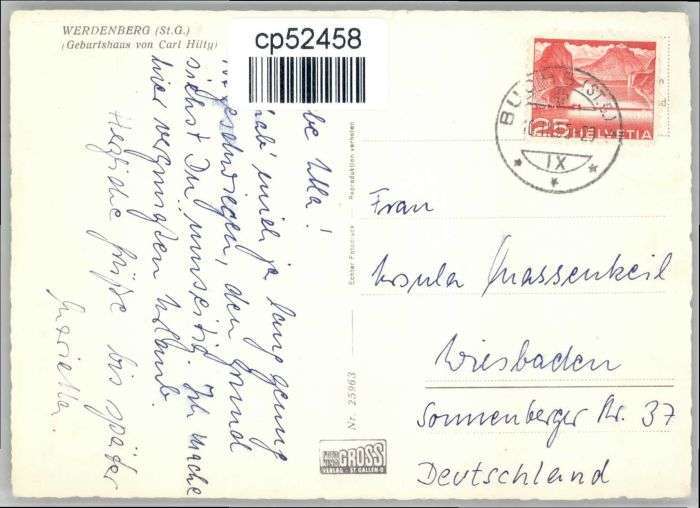 WERDENBERG (St.G.)
(Geburtshaus von Carl Hilty)
cp52458
be Ulla!
hab' mich ja lang genug
geschwiegen, den Grund
siehst Du umseitig. Ich mache
hier vergnügten Urlaub.
Herzliche Grüße bis später
Marietta.
Reproduktion verboten
Echter Fotodruck
Nr. 25963
FOTO GROSS
VERLAG - ST. GALLEN-O
BUCHS (ST.G.)
IX
25 HELVETIA
Frau
Ursula Massenkeil
Wiesbaden
Sonnenberger Str. 37
Deutschland